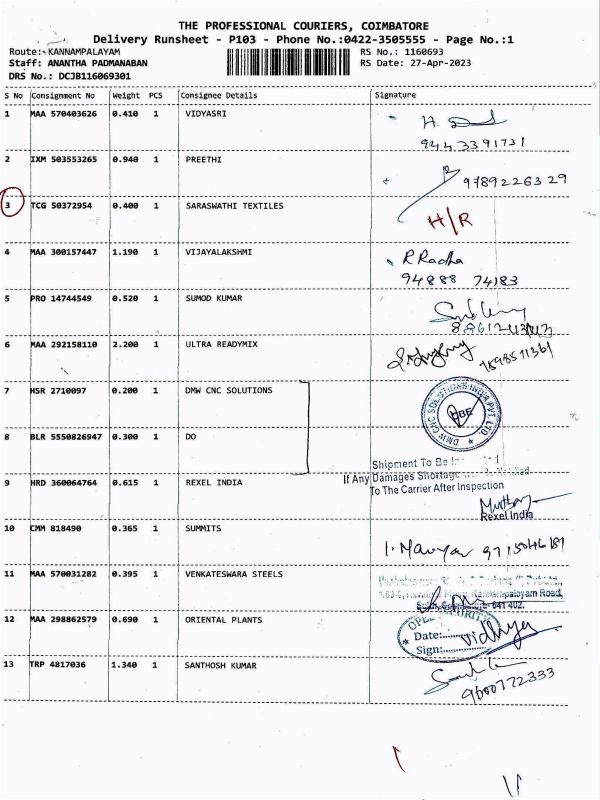 THE PROFESSIONAL COURIERS, COIMBATORE
Delivery Runsheet - P103 - Phone No.:0422-3505555 - Page No.:1
Route:- KANNAMPALAYAM
RS No.: 1160693
Staff: ANANTHA PADMANABAN
RS Date: 27-Apr-2023
DRS No.: DCJB116069301
S No Consignment No Weight PCS Consignee Details Signature
1 MAA 570403626 0.410 1 VIDYASRI
H.
9443391731
2 IXM 503553265 0.940 1 PREETHI
9789226329
3 TCG 50372954 0.400 1 SARASWATHI TEXTILES
H/R
4 MAA 300157447 1.190 1 VIJAYALAKSHMI
R Radha
94888 74183
5 PRO 14744549 0.520 1 SUMOD KUMAR
6 MAA 292158110 2.200 1 ULTRA READYMIX
7598511361
7 HSR 2710097 0.200 1 DMW CNC SOLUTIONS
DMW CNC SOLUTIONS INDIA PVT. LTD.
CBE
8 BLR 5550826947 0.300 1 DO
Shipment To Be
If Any Damages Shortage
To The Carrier After Inspection
9 HRD 360064764 0.615 1 REXEL INDIA
Rexel India
10 CMM 818490 0.365 1 SUMMITS
11 MAA 570031282 0.395 1 VENKATESWARA STEELS
Kannampalayam Road,
641 402.
12 MAA 298862579 0.690 1 ORIENTAL PLANTS
SECURITY
Date:
Vidhya
Sign:
13 TRP 4817036 1.340 1 SANTHOSH KUMAR
9600772333